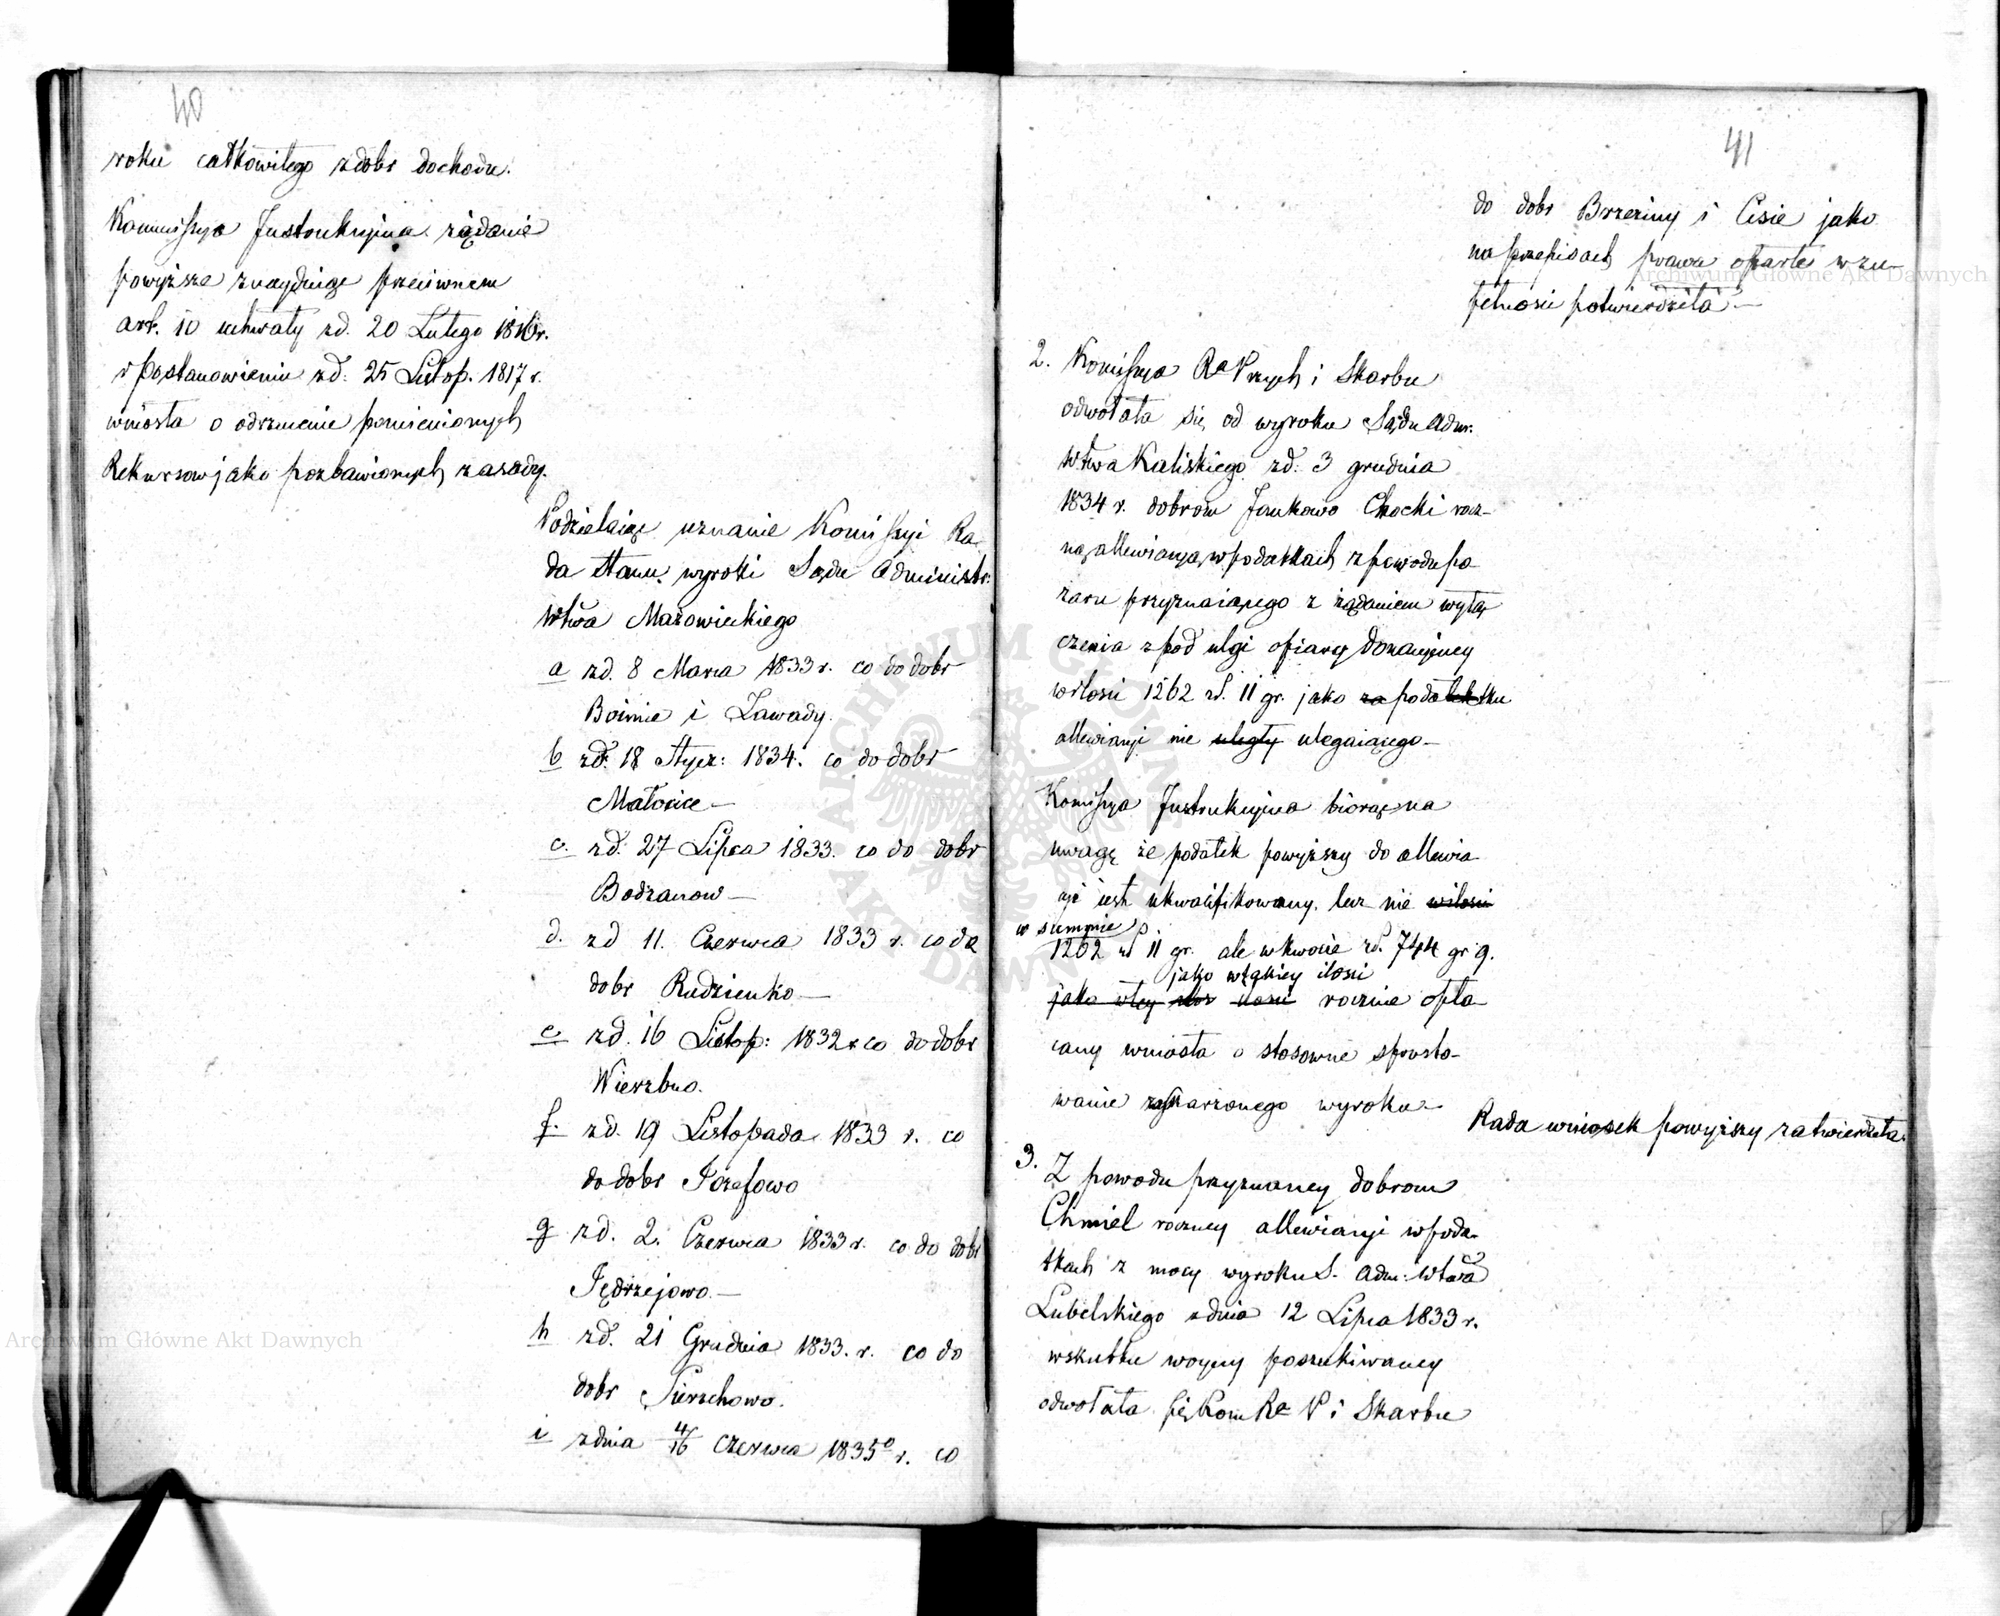 40
roku całkowitego z dobr dochodu.
Kommissya Instrukcyina żądanie
powyższe znayduiąc przeciwnem
art. 10 uchwały zd. 20 Lutego 1816 r.
i postanowieniu zd: 25 Listop. 1817 r.
wniosła o odrzucenie pomienionych
Rekursow jako pozbawionych zasady.
Podzielaiąc uznanie Komissyi Ra
da Stanu, wyroki Sądu Administr:
Wtwa Mazowieckiego
a zd. 8 Marca 1833 r. co do dobr
Boimie i Zawady.
b zd: 18 Stycz: 1834. co do dobr
Małocice —
c. zd: 27 Lipca 1833. co do dobr
Bodzanow —
d. zd 11. Czerwca 1833 r. co do
dobr Rudzienko —
e zd. 16 Listop: 1832 r co do dobr
Wierzbno.
f. zd. 19 Listopada 1833 r. co
do dobr Jozefowo
g zd. 2. Czerwca 1833 r. co do dobr
Jędrzejowo. —
h zd. 21 Grudnia 1833. r. co do
dobr Sierzchowo.
i z dnia 4/16 Czerwca 1835 r. co
41
do dobr Brzeziny i Cisie jako
na przepisach prawa oparte w zu-
pełności potwierdziła —
2. Komissya R P i Skarbu
odwołała się od wyroku Sądu Adm.
Wtwa Kaliskiego zd: 3 grudnia
1834 r. dobrom Jankowo Chocki rocz-
ną allewiacyą w podatkach z powodu po
żaru przyznaiącego z żądaniem wyłą
czenia z pod ulgi ofiary donacyiney
w ilosci 1262 zł. 11 gr. jako za podatku
allewiacyi nie uległy ulegaiącego —
Komissya Instrukcyina biorąc na
uwagę że podatek powyższy do allewia
cyi iest ukwalifikowany, lecz nie w ilosci
w summie
1262 zł 11 gr. ale w kwocie zł. 744 gr 9.
jako w takiey ilosci
jako w tey ilosci rocznie opła-
cany wniosła o stosowne sprosto-
wanie zaskarżonego wyroku —
Rada wniosek powyższy zatwierdziła.
3. Z powodu przyznaney dobrom
Chmiel roczney allewiacyi w poda-
tkach z mocy wyroku S. Adm: Wtwa
Lubelskiego z dnia 12 Lipca 1833 r.
wskutku woyny poszukiwaney
odwołała się Kom R P i Skarbu
Archiwum Główne Akt Dawnych
Archiwum Główne Akt Dawnych
ARCHIWUM GŁÓWNE AKT DAWNYCH